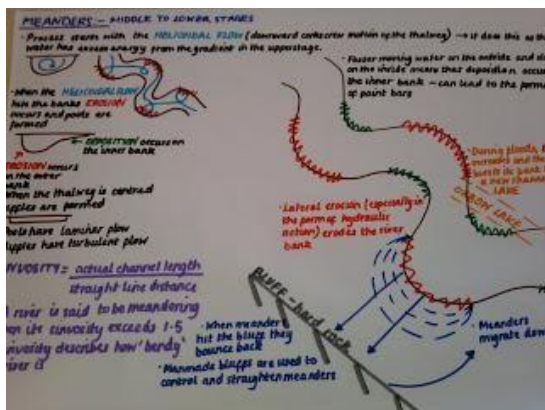 MEANDERS - MIDDLE TO LOWER STAGES
Process starts with the HELICOIDAL FLOW (downward corkscrew motion of the thalweg) → it does this as the
water has excess energy from the gradient in the upperstage.
When the HELICOIDAL FLOW
hits the banks EROSION
occurs and pools are
formed
DEPOSITION occurs on
the inner bank
EROSION occurs
on the outer
bank
When the thalweg is centred
riffles are formed
Pools have laminar flow
riffles have turbulent flow
SINUOSITY = actual channel length
straight line distance
river is said to be meandering
when its sinuosity exceeds 1.5
sinuosity describes how 'bendy'
river is
Faster moving water on the outside and
on the inside means that deposition
the inner bank - can lead to the
of point bars
During floods,
increases and the
bank
a new channel
LAKE
OXBOW LAKE
Lateral erosion (especially in
the form of hydraulic
action) erodes the river
bank
BLUFF - hard rock
When meanders
hit the bluff they
bounce back
Manmade bluffs are used to
control and straighten meanders
Meanders
migrate